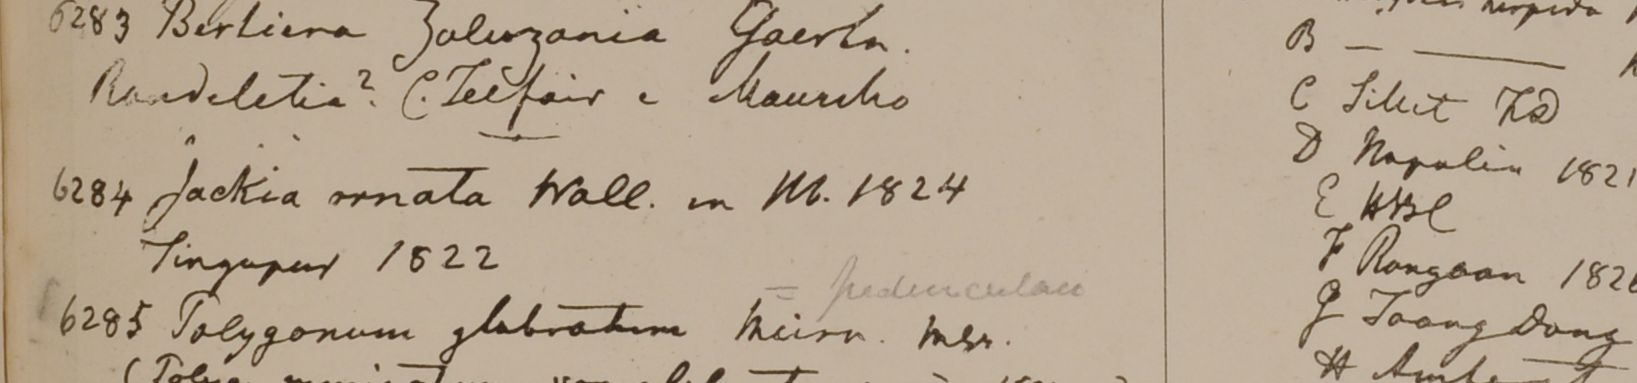 6283 Bertiera Zaluzania Gaertn.
Rondeletia? C. Telfair e Mauritio
6284 Jackia ornata Wall. in M. 1824
Singapur 1822
= pedunculare
6285 Polygonum glabratum Meisn. Mss.
(Polyg.
hispida
B — ———
C Silhet FD
D Napalia 1821
E HBC
F Rangoon 1826
G Taong Dong
H Amherst